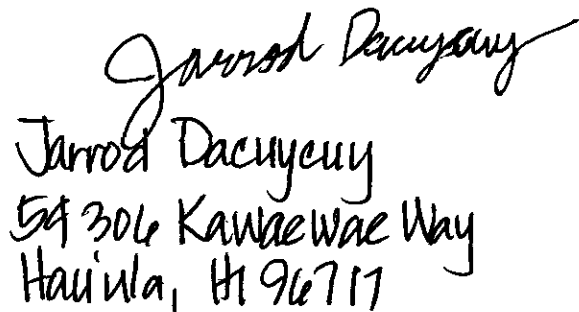 Jarrod Dacuycuy
Jarrod Dacuycuy
54 306 Kawaewae Way
Hauiula, HI 96717